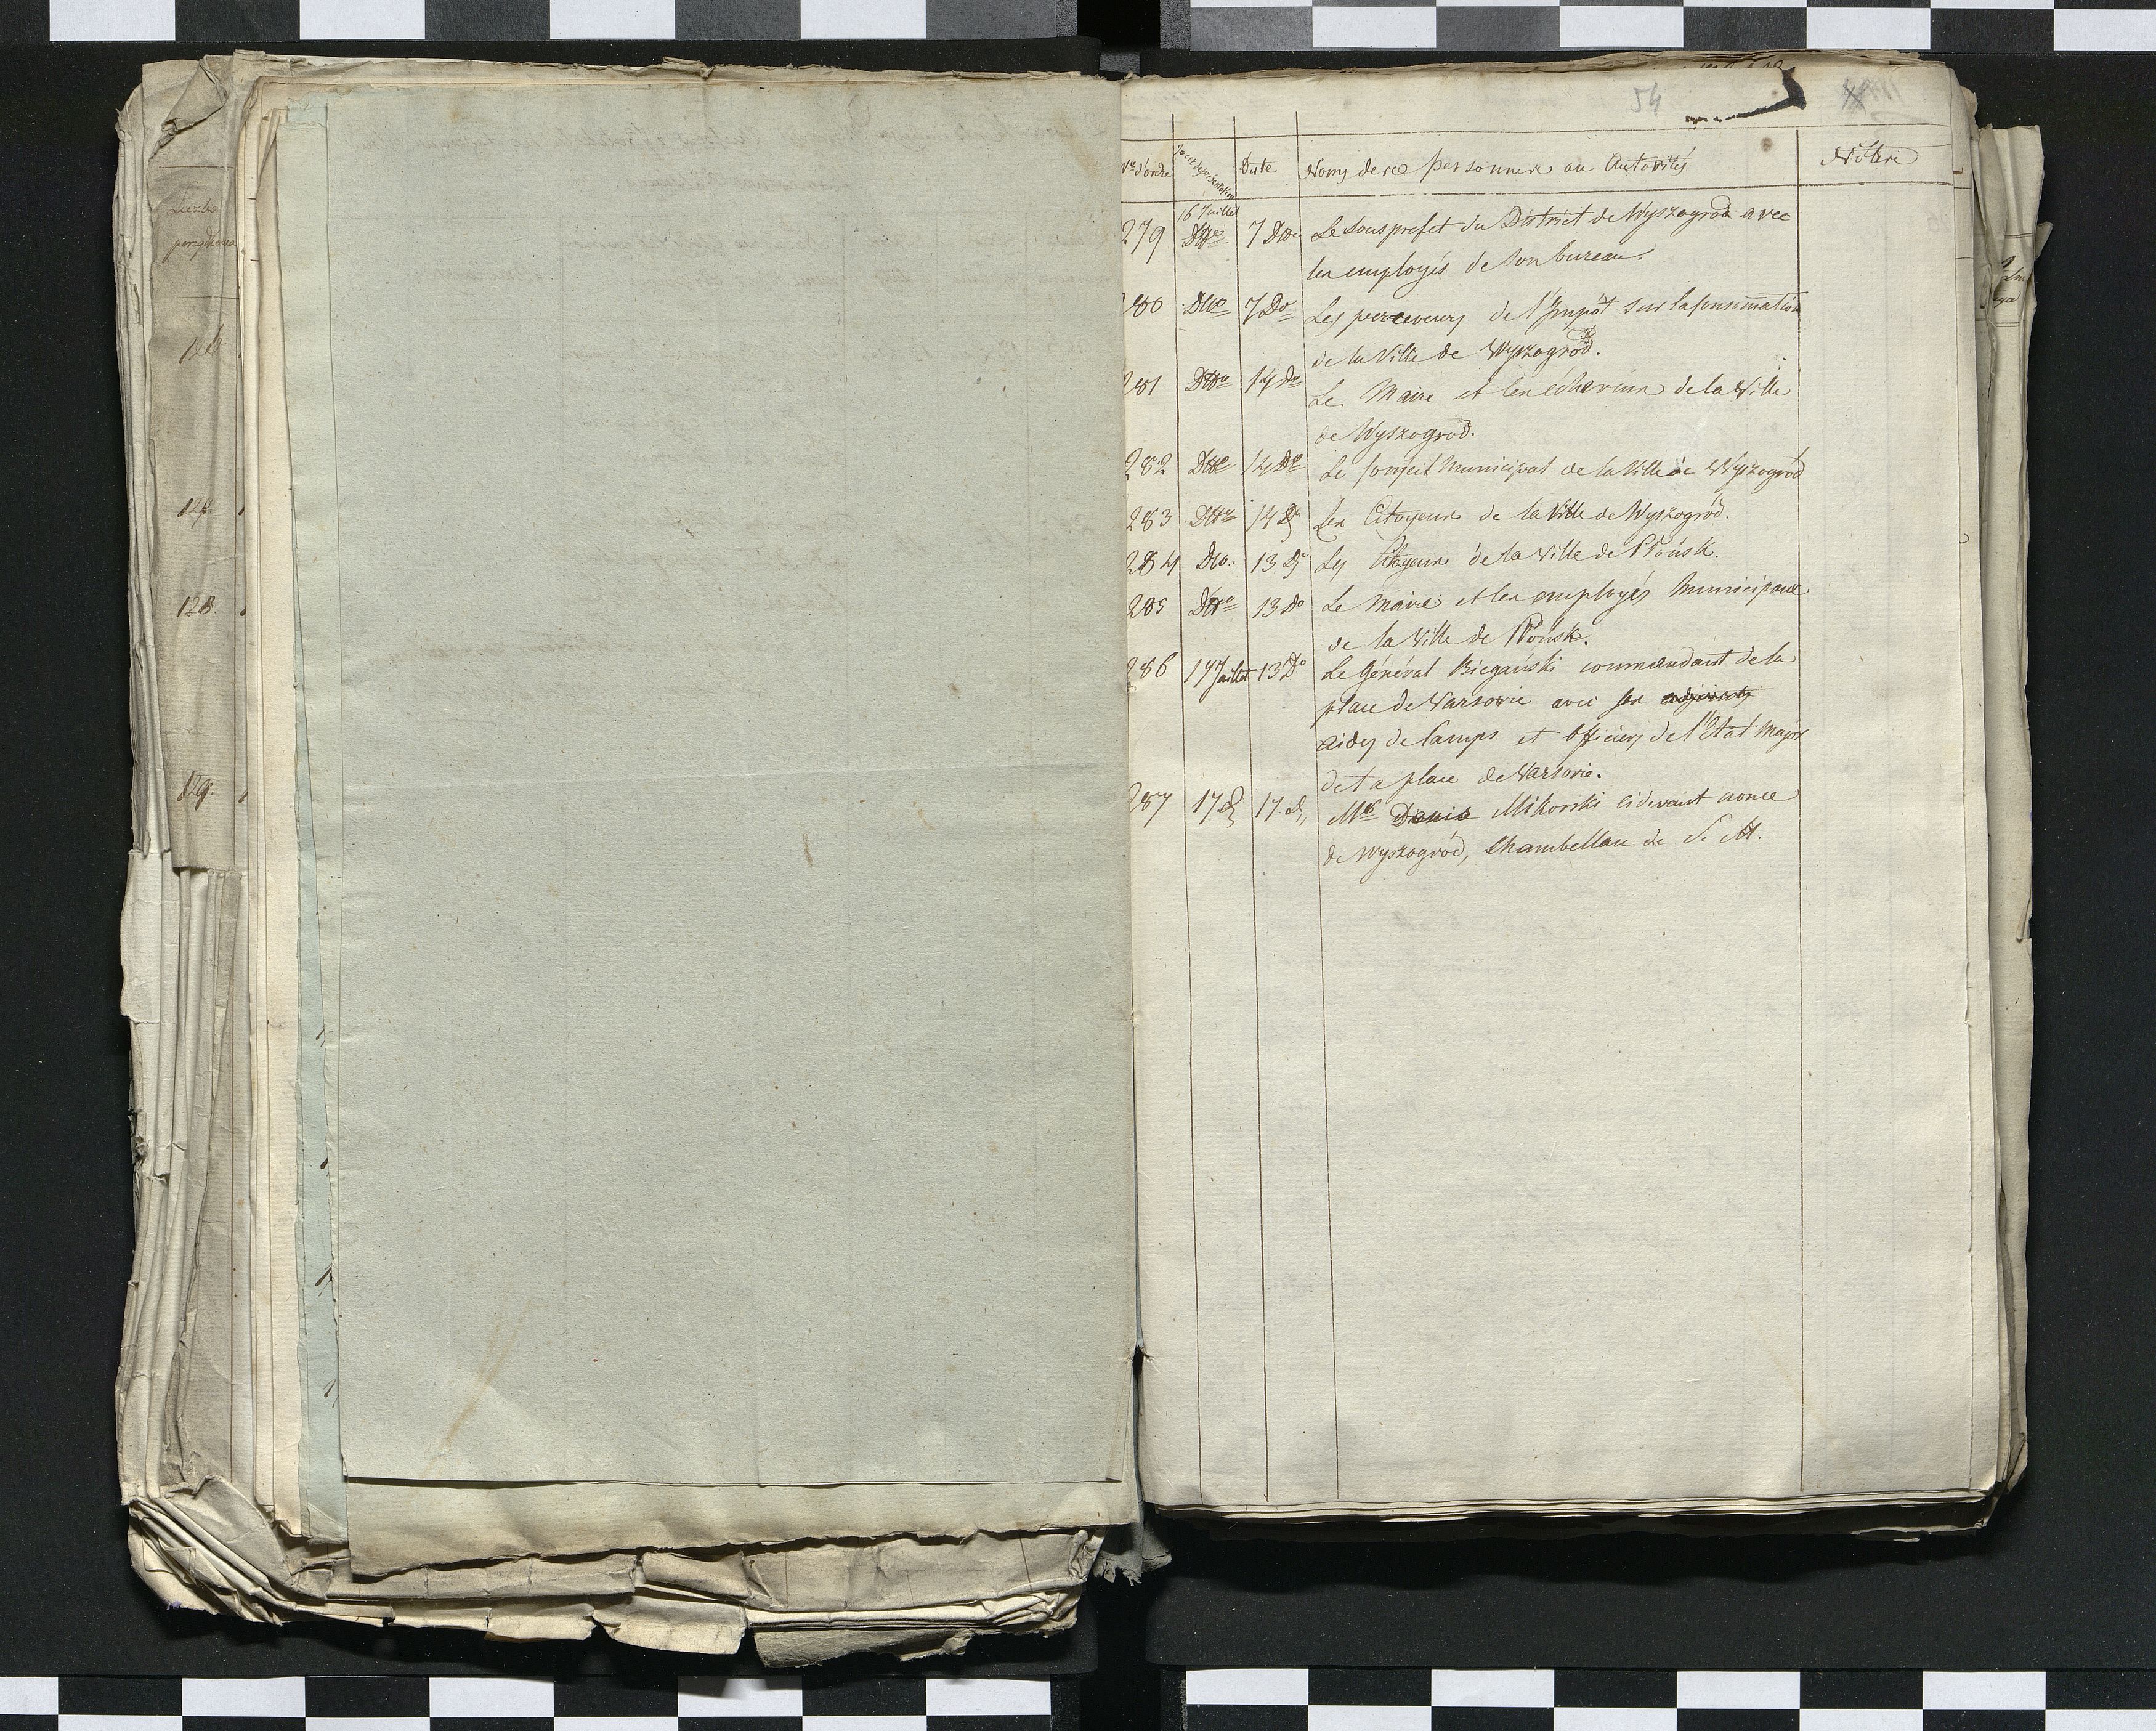 Liczba
porządkowa
126
127
128.
129.
54
Nr d'ordre Jour de présentation Date Noms de ces personnes ou Autorités Notices
279 16 Juillet Dtto 7 Dtto Le Sous prefet du District de Wyszogrod avec
les employés de son bureau.
280 Dtto 7 Do Les perceveurs de l'Impôt sur la Consomation
de la Ville de Wyszogród.
281 Dtto 14 Do Le Maire et les échevins de la Ville
de Wyszogród.
282 Dtto 14 Do Le Conseil Municipal de la Ville de Wyszogród
283 Dtto 14 Do Les Citoyens de la Ville de Wyszogród.
284 Dto. 13 Do Les Citoyens de la Ville de Płońsk.
285 Dtto 13 Do Le Maire et les employés Municipaux
de la Ville de Płońsk.
286 17 Juillet 13 Do Le Général Biegański commendant de la
place de Varsovie avec ses
aides de Camps et Officiers de l'Etat Major
de la place de Varsovie.
287 17 D 17. D, Mr Denis Mikorski cidevant nonce
de Wyszogród, Chambellan de S. M.